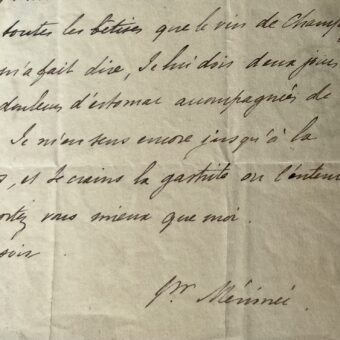 toutes les bêtises que le vin de Champ
m'a fait dire, Je lui dois deux jours
douleurs d'estomac accompagnées de
Je m'en sens encore jusqu'à la
, et Je crains la gastrite ou l'enter
ortez vous mieux que moi.
soir
Pr Mérimée